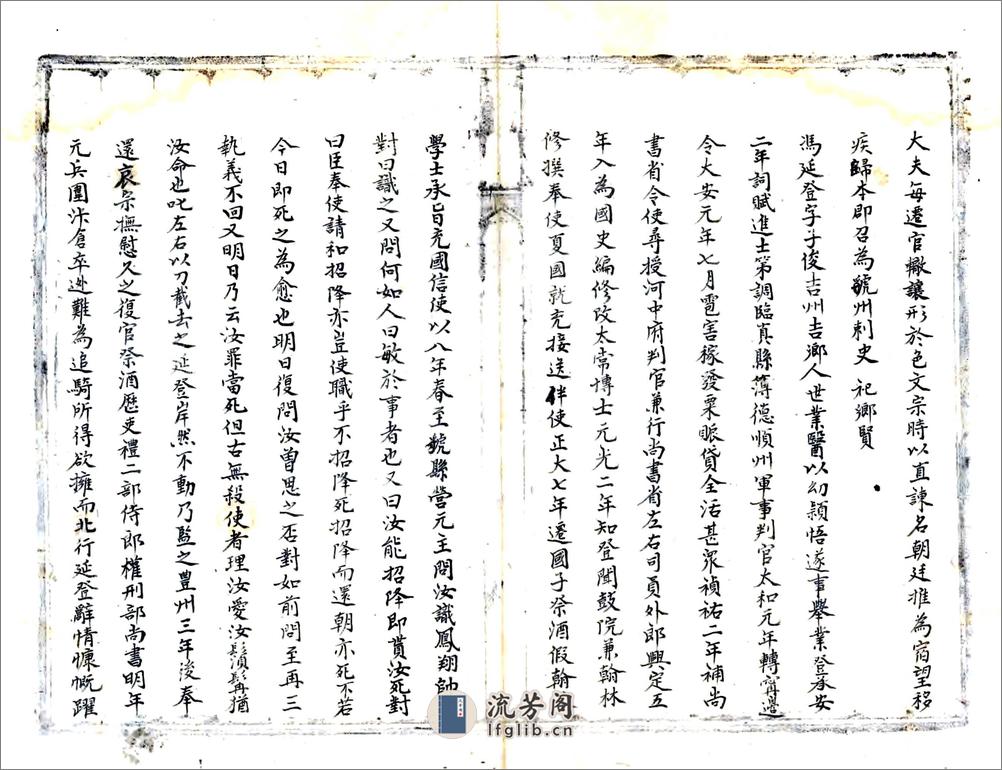 大夫每遷官輙讓形於色文宗時以直諫名朝廷推為宿望移
疾歸本即召為虢州刺史 祀鄉賢
馮延登字子俊吉州吉鄉人世業醫以幼穎悟遂事舉業登承安
二年詞賦進士第調臨真縣簿德順州軍事判官太和元年轉寧邊
令大安元年七月雹害稼發粟賑貸全活甚眾禎祐二年補尚
書省令使尋授河中府判官兼行尚書省左右司員外郎興定五
年入為國史編修改太常博士元光二年知登聞鼓院兼翰林
修撰奉使夏國就充接送伴使正大七年遷國子祭酒假翰
學士承旨充國信使以八年春至虢縣營元主問汝識鳳翔帥
對曰識之又問何如人曰敏於事者也又曰汝能招降即貰汝死對
曰臣奉使請和招降亦豈使職乎不招降死招降而還朝亦死不若
今日即死之為愈也明日復問汝曾思之否對如前問至再三
執義不回又明日乃云汝罪當死但古無殺使者理汝愛汝鬚髯猶
汝命也叱左右以刀截去之延登岸然不動乃監之豊州三年後奉
還哀宗撫慰久之復官祭酒歷吏禮二部侍郎權刑部尚書明年
元兵圍汴倉卒逃難為追騎所得欲擁而北行延登辭情慷慨躍
流芳阁
lfglib.cn